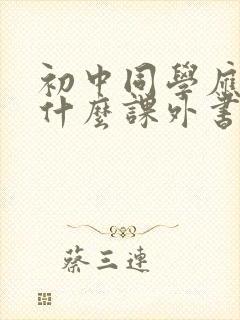 初中同學應
什麼課外書
蔡三連